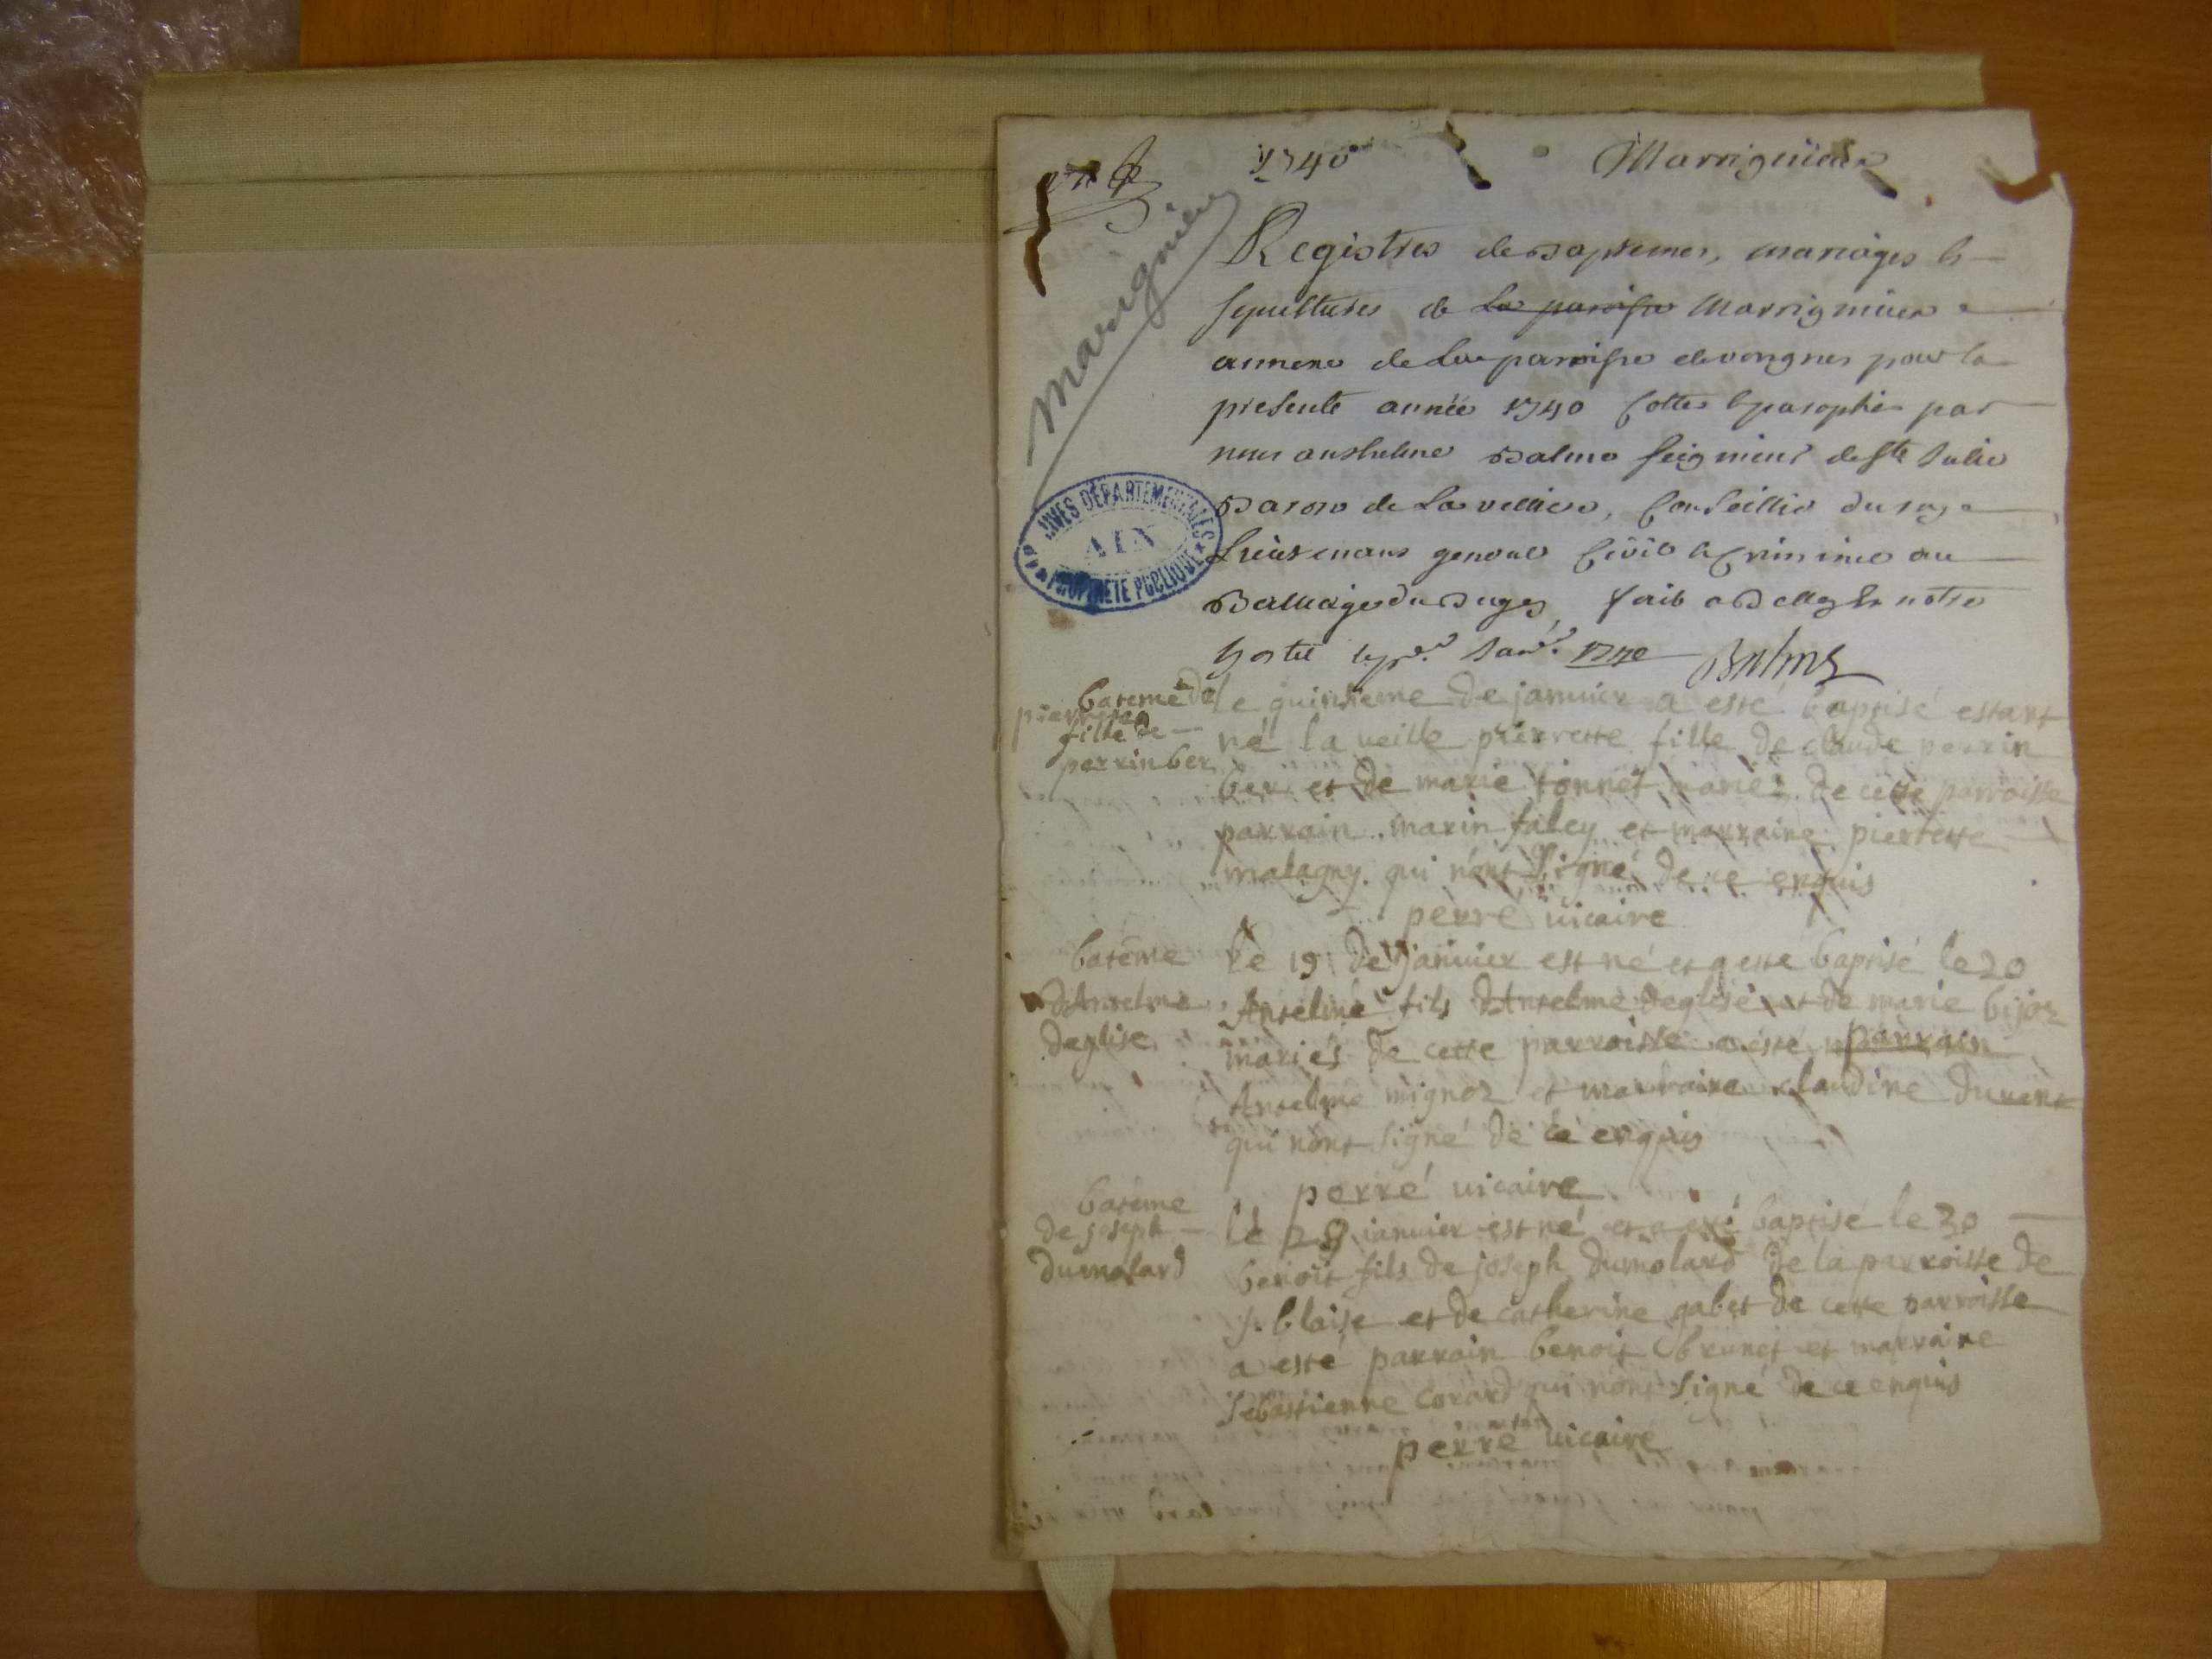 1740 Marrignieux
Marignieu
Registres de Baptemes, mariages &
sepultures de la paroisse Marrignieux
annexe de la paroisse de vongnes pour la
presente année 1740 Cottes & parophés par
nous anthelme Balme seigneur de Ste Julie
Baron de la velliere, Conseillier du roy
Lieutenant general Civil & Criminel au
Bailliage du Bugey, fait a Belley & notre
hostel le pr. Janr. 1740 Balme
ARCHIVES DÉPARTEMENTALES
AIN
PROPRIÉTÉ PUBLIQUE
bateme de
pierrette
fille de
perrin ber
le quinsieme de janvier a esté baptisé estant
né la veille pierrette fille de claude perrin
ber et de marie tonnet mariés de cette parroisse
parrain marin faley et marraine pierrette
malagny qui n'ont signé de ce enquis
perré vicaire
bateme
d'Antelme
deglise
le 19 de janvier est né et a esté baptisé le 20
Antelme fils d'Antelme deglise et de marie bijoz
mariés de cette parroisse a esté parrain
Antelme mignoz et marraine claudine duvent
qui n'ont signé de ce enquis
perré vicaire
bateme
de joseph
dumolard
le 29 janvier est né et a esté baptisé le 30
benoit fils de joseph dumolard de la parroisse de
s. blaise et de catherine galet de cette parroisse
a esté parrain benoit brunet et marraine
sebastienne corard qui n'ont signé de ce enquis
perré vicaire